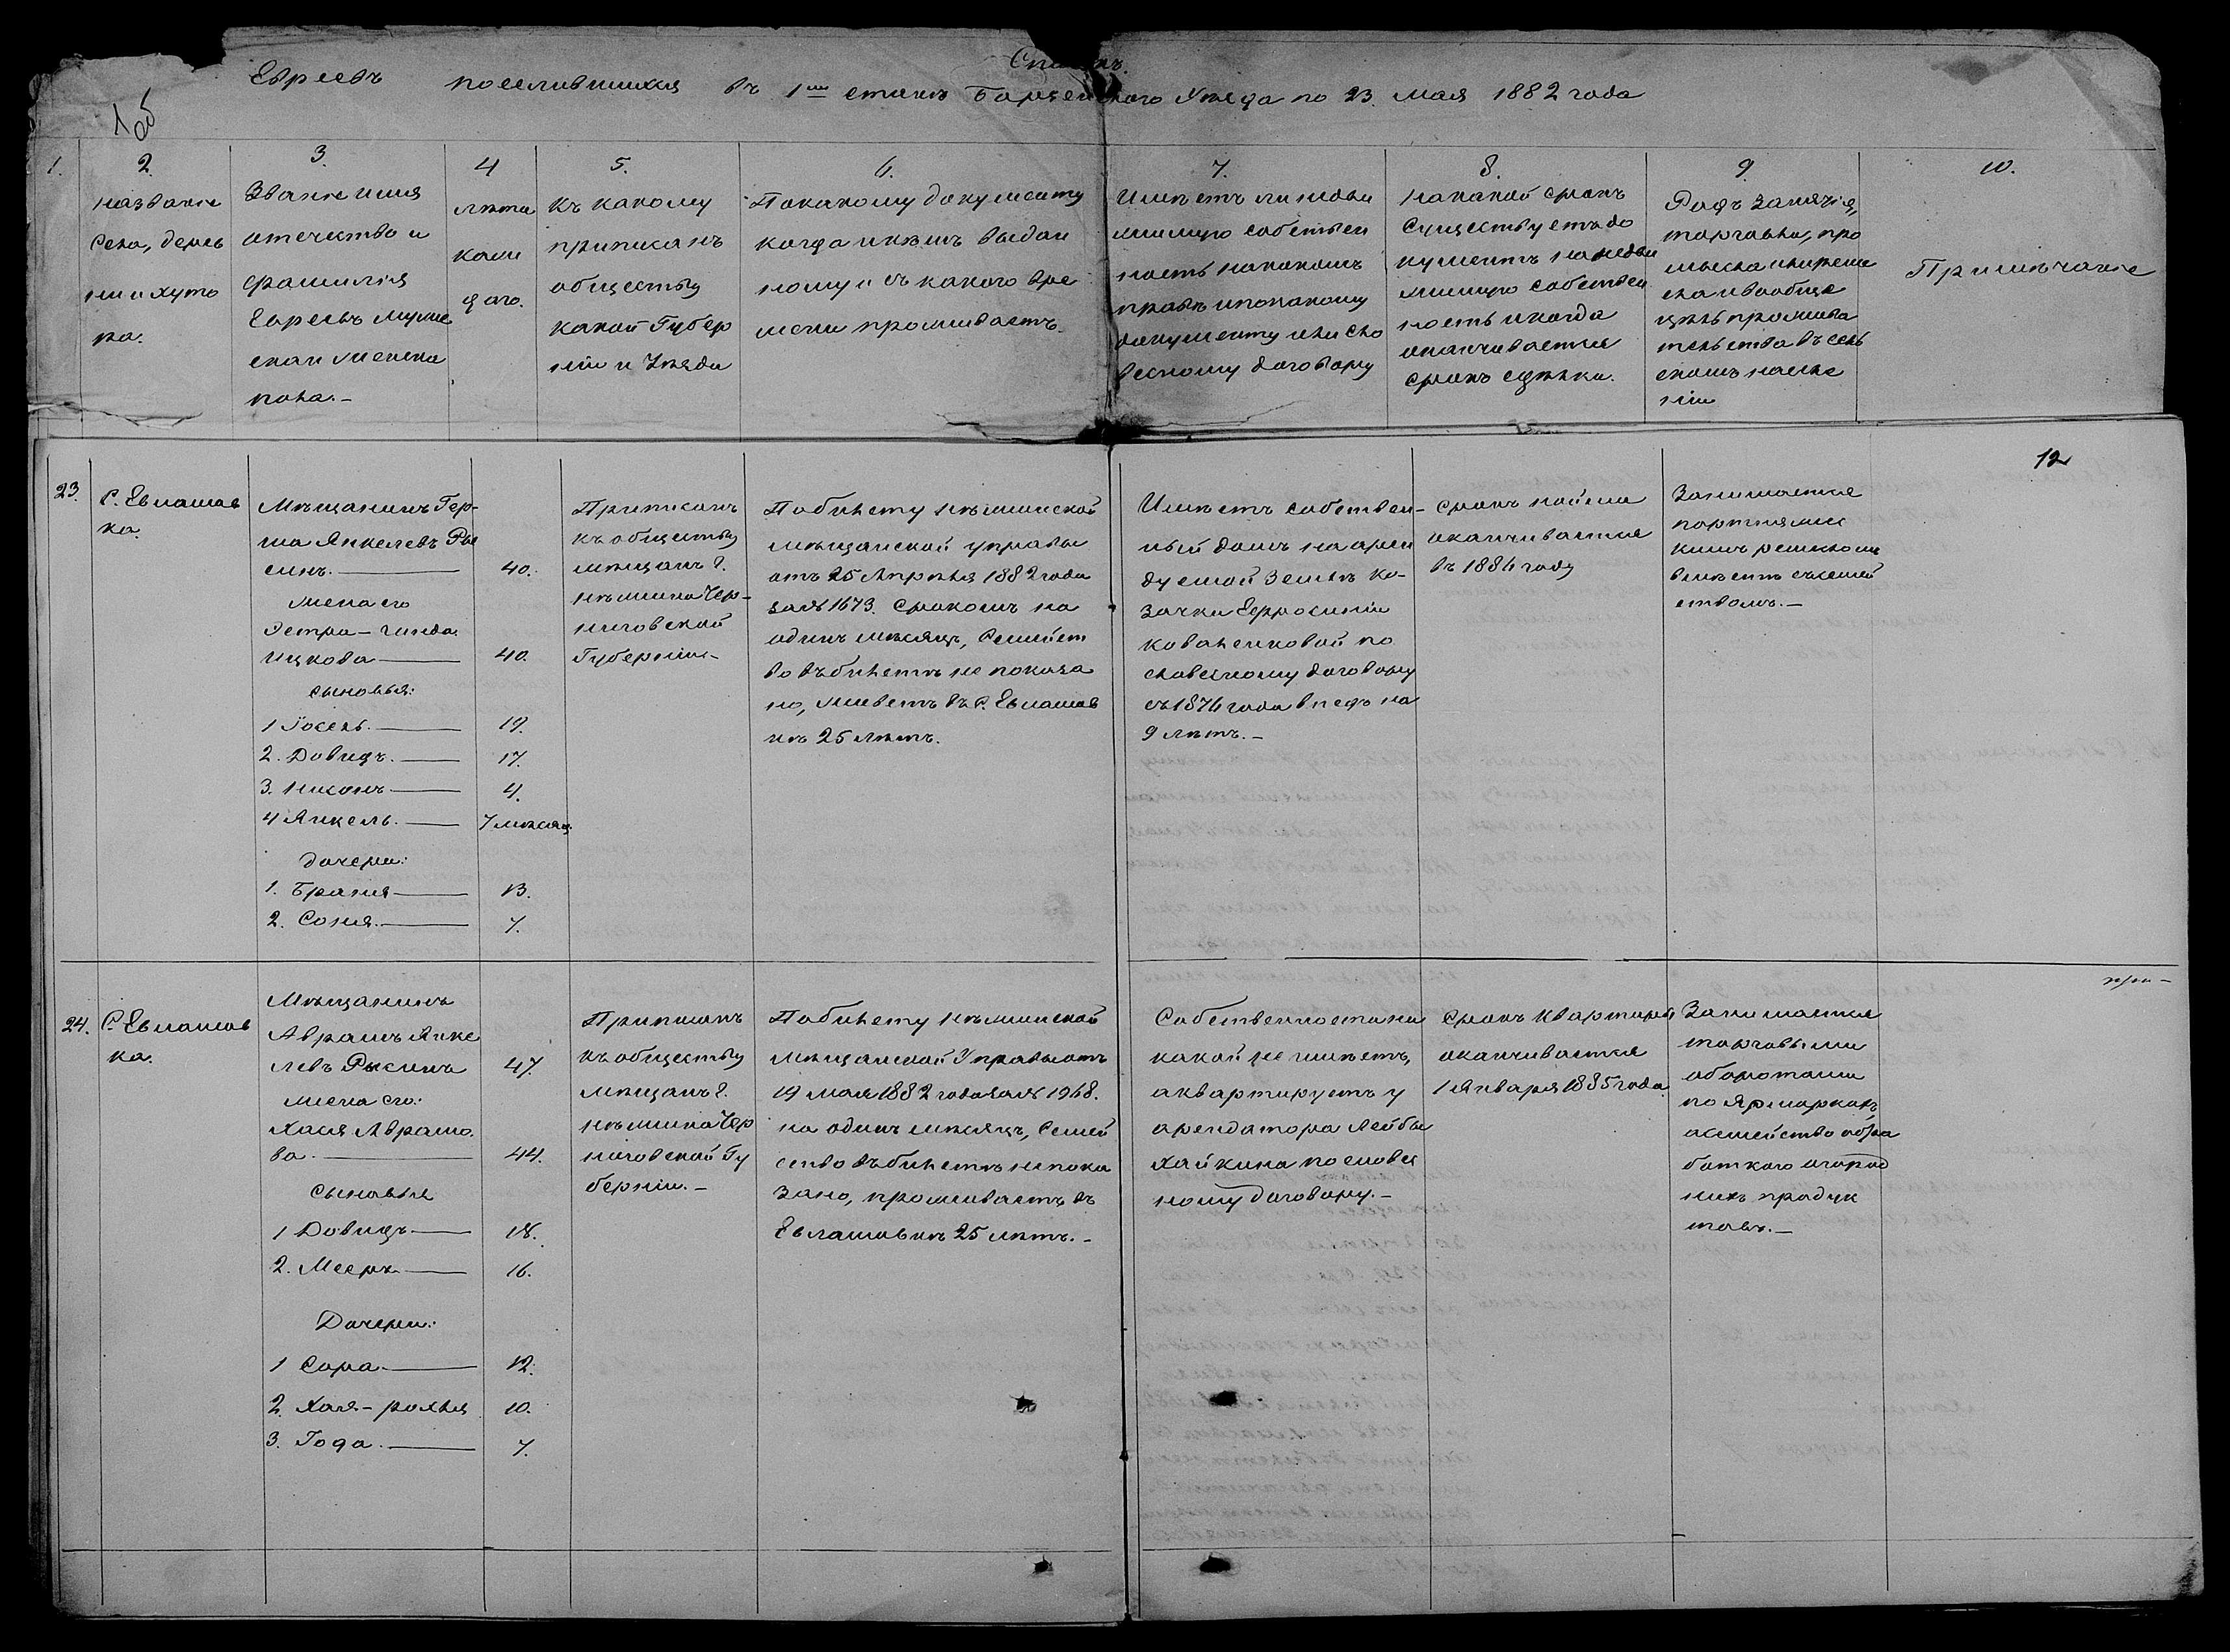 Списокъ
Евреевъ поселившихся въ 1мъ станѣ Борзенскаго Уѣзда по 23. мая 1882 года
1.
2.
Названіе
Села, дерев
ни и хуто
ра.
3.
Званіе имя
отечество и
фамилія
Евреевъ муже
скаи женска
пола.-
4
лѣта
каж
даго.
5.
Къ какому
приписанъ
обществу
какой Губер
ніи и Уѣзда
6.
По какому документу
когда и кѣмъ выдан
ному и съ какого вре
мени проживаетъ.
7.
Имѣетъ ли недви
жимую собствен
ность на какомъ
правѣ и по какому
документу или сло
весному договору
8.
На какой срокъ
существуетъ до
кументъ на недви
жимую собствен
ность и когда
оканчивается
срокъ сдѣлки.
9.
Родъ занятія,
торговли, про
мысла и ремес
ла и вообще
цѣль прожива
тельства въ сель
скомъ населе
ніи
10.
Примѣчаніе
12
23.
С. Евлашов
ка.
Мѣщанинъ Гер-
ша Янкелевъ Ры
синъ. 40.
жена его
Эстра-Гинда
Ицкова 40.
сыновья:
1 Іосель. 19.
2. Довидъ. 17.
3. 4.
4 Янкель. 7 мѣсяц.
дочери:
1. Браня 13.
2. Соня. 7.
Приписанъ
къ обществу
мѣщанъ г.
Нѣжина Чер-
ниговской
Губерніи-
По билету Нѣжинской
мѣщанской управы
отъ 25 Апрѣля 1882 года
за № 1673. Срокомъ на
одинъ мѣсяцъ, Семейст
во въ билетѣ не показа
но, живетъ въ с. Евлашов
кѣ 25 лѣтъ.
Имѣетъ собствен-
ный домъ на арен
дуемой землѣ ко-
зачки Ефросиніи
Коваленковой по
словесному договору
съ 1876 года впедъ на
9 лѣтъ.-
срокъ найма
оканчивается
въ 1886 году
Занимается
портняжес
кимъ ремесломъ
вмѣстѣ съ семей
ствомъ.-
24.
С. Евлашов
ка.
Мѣщанинъ
Аврамъ Янке
левъ Рысинъ 47.
жена его:
Хася Аврамо
ва. 44.
сыновья
1 Довидъ 18.
2. Мееръ 16.
Дочери:
1 Сора 12.
2. Хая-рохля 10.
3. Года. 7.
Приписанъ
къ обществу
мѣщанъ г.
Нѣжина Чер
ниговской Гу
берніи.-
По билету Нѣжинской
Мѣщанской Управы отъ
19 мая 1882 года за № 1968.
на одинъ мѣсяцъ, Семей
ство въ билетѣ не пока
зано, проживаетъ въ
Евлашовкѣ 25 лѣтъ.-
Собственности ни
какой не имѣетъ,
а квартируетъ у
арендатора Лейбы
Хайкина по словес
ному договору.-
срокъ квартиры
оканчивается
1 Января 1885 года
Занимается
торговыми
оборотами
по Ярмаркамъ
а семейство обра
боткою огород
нихъ продук
товъ.-
при-